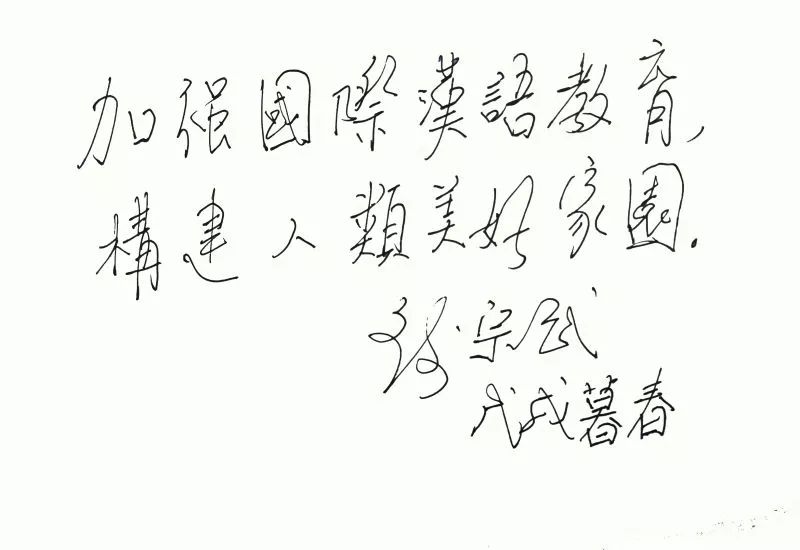 加强國際漢語教育,
構建人類美好家園.
宗武
戊戌暮春